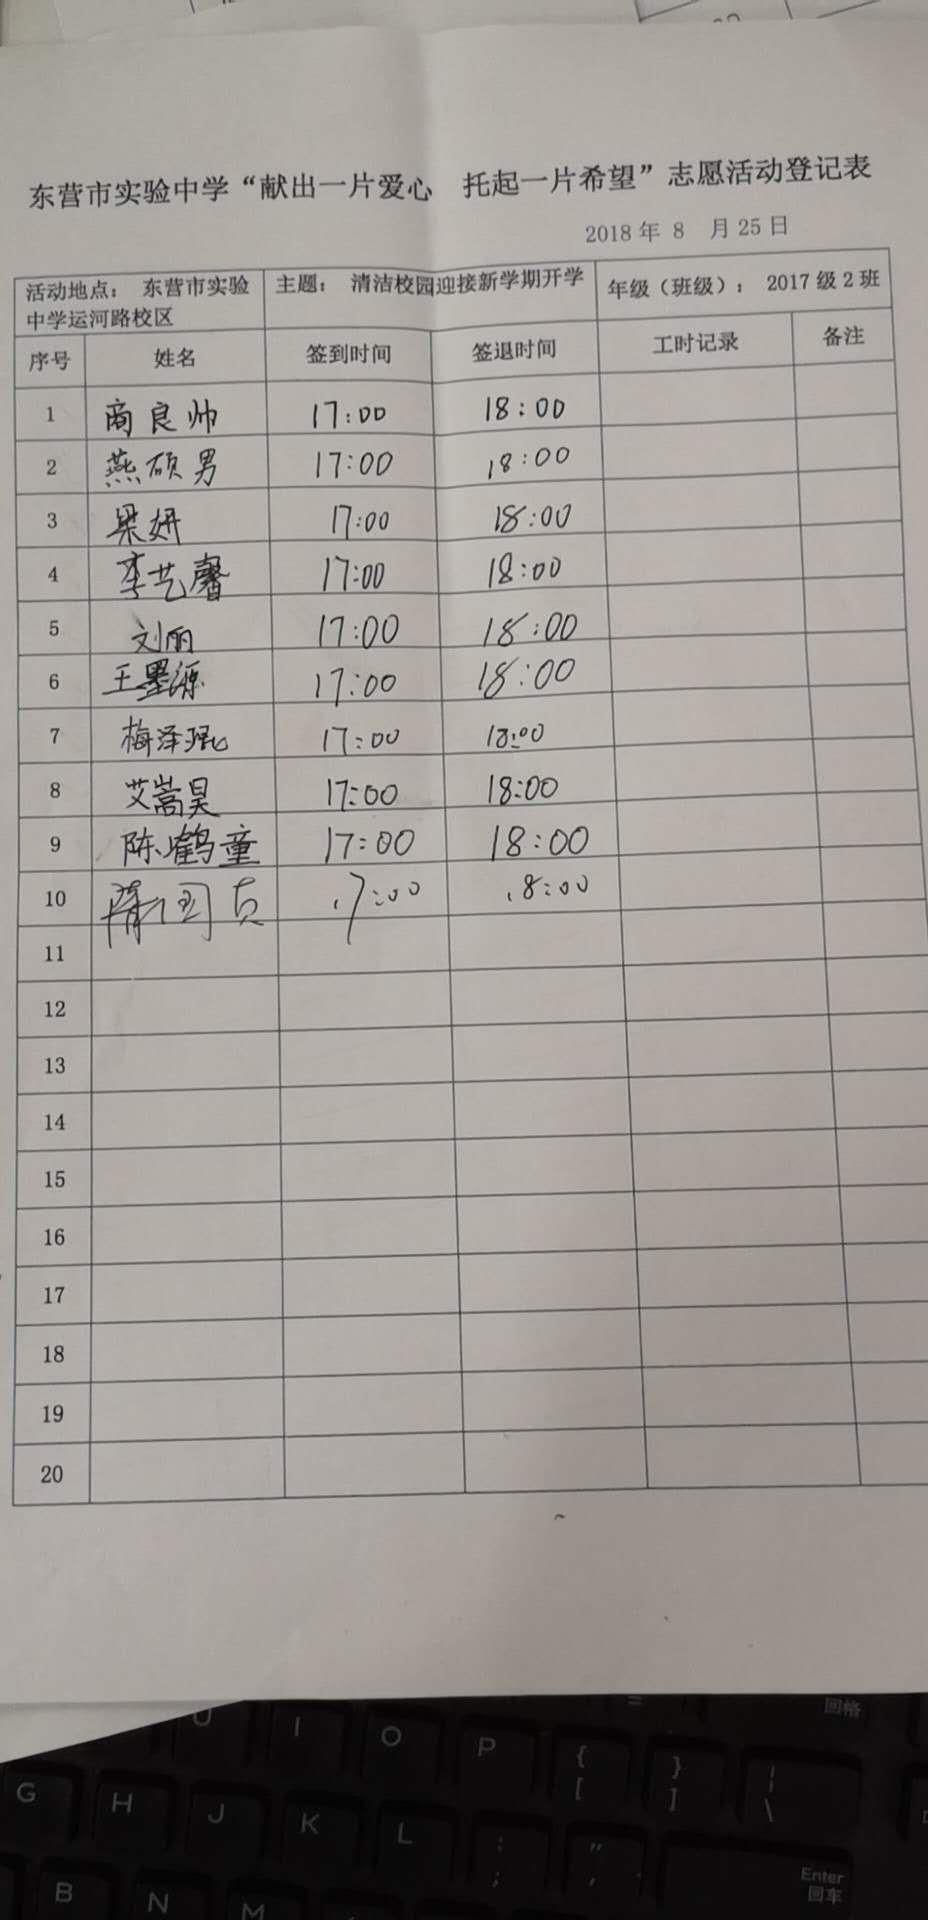 东营市实验中学“献出一片爱心 托起一片希望”志愿活动登记表
2018 年 8 月 25 日
活动地点： 东营市实验中学运河路校区 主题： 清洁校园迎接新学期开学 年级（班级）： 2017 级 2 班
序号 姓名 签到时间 签退时间 工时记录 备注
1 商良帅 17:00 18:00
2 燕硕男 17:00 18:00
3 梁妍 17:00 18:00
4 李艺馨 17:00 18:00
5 刘丽 17:00 18:00
6 王墨源 17:00 18:00
7 梅泽琨 17:00 18:00
8 艾嵩昊 17:00 18:00
9 陈鹤童 17:00 18:00
10 17:00 18:00
11
12
13
14
15
16
17
18
19
20
U I O P { [ } ] | \ 回格
G H J K L : ; " , Enter 回车
B N M